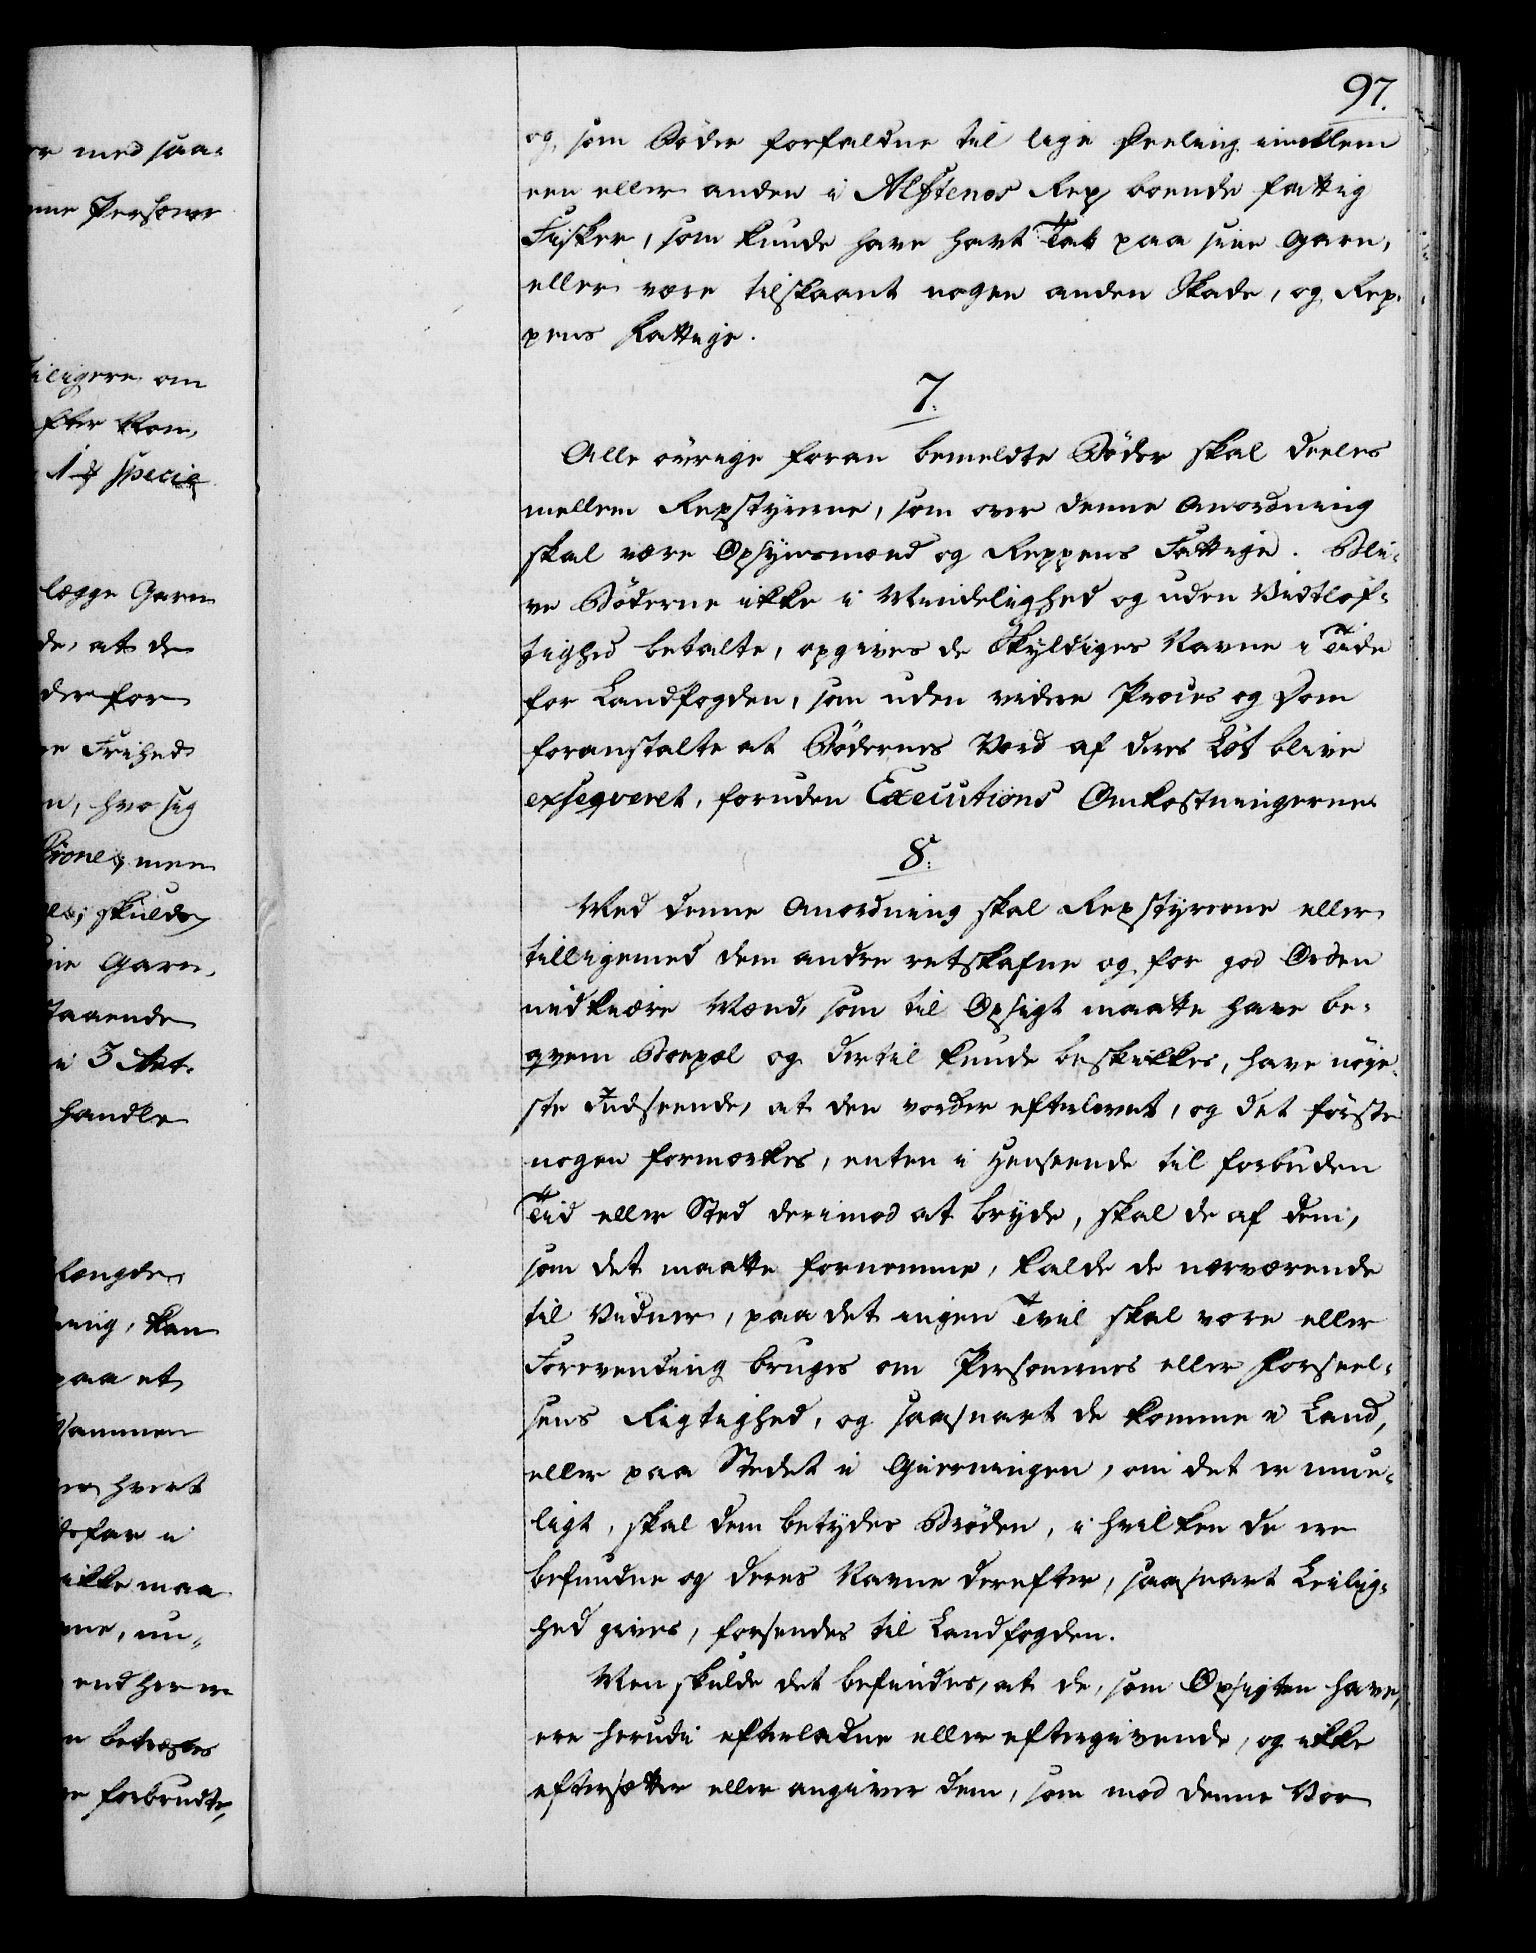 97.
og, som Böder forfaldne til lige Deeling imellem
een eller anden i Alstenos Rep boende fattig
Fisker, som kunde have havt Tab paa sine Garn,
eller være tilskaant nogen anden Skade, og Rep¬
pens Fattige.
7.
Alle övrige foran bemeldte Böder skal deeles
mellem Repstyrerne, som over denne Anordning
skal være Opsynsmænd og Reppens Fattige. Bli¬
ve Böderne ikke i Mindelighed og uden Vidtløf¬
tighed betalte, opgives de Skyldiges Navne i Tide
for Landfogden, som uden videre Proces og Dom
foranstalte at Bödernes Værd af deres Löt blive
exseqveret, foruden Executions Omkostningerne
8.
Med denne Anordning skal Repstyrerne eller
tilligemed dem andre retskafne og for god Orden
nidkiære Mænd, som til Opsigt maatte have be¬
qvem Boepæl og dertil kunde beskikkes, have nöye¬
ste Indseende, at den vorder efterlevet, og det förste
nogen formærkes, enten i Henseende til forbuden
Tid eller Sted derimod at bryde, skal de af dem,
som det maatte fornemme, kalde de nærværende
til Vidner, paa det ingen Tvil skal være eller
Forevending bruges om Personernes eller Forseel¬
sens Rigtighed, og saasnart de komme i Land,
eller paa Stedet i Gierningen, om det er mue¬
ligt, skal dem betydes Bröden, i hvilken de ere
befundne og deres Navne derefter, saasnart Leilig¬
hed gives, forsendes til Landfogden.
Men skulde det befindes, at de, som Opsigten have,
ere herudi efterladne eller eftergivende, og ikke
eftersætter eller angiver dem, som mod denne Vor
med saa¬
Personer
om
1 specie
lægge Garn
at de
derfor
Frihed
hvo sig
men
skulde
Garn
i 3 Art.
handle
Længde
kan
paa et
sammen
hvert
ikke maa
end her er
betræftes
forbrudte,